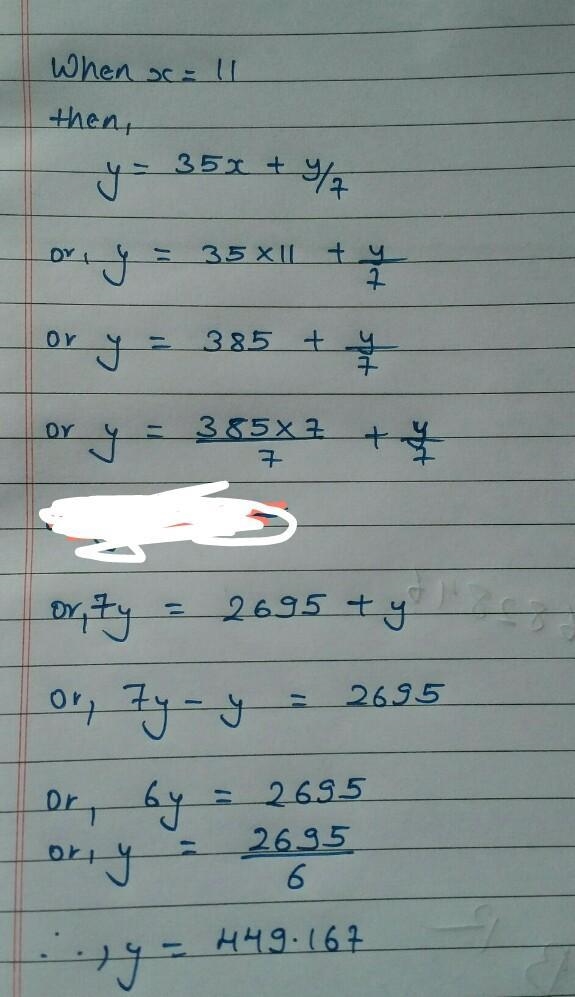 When x = 11
then,
y = 35x + y/7
or, y = 35×11 + y/7
or y = 385 + y/7
or y = 385×7/7 + y/7
or, 7y = 2695 + y
or, 7y - y = 2695
or, 6y = 2695
or, y = 2695/6
∴, y = 449.167